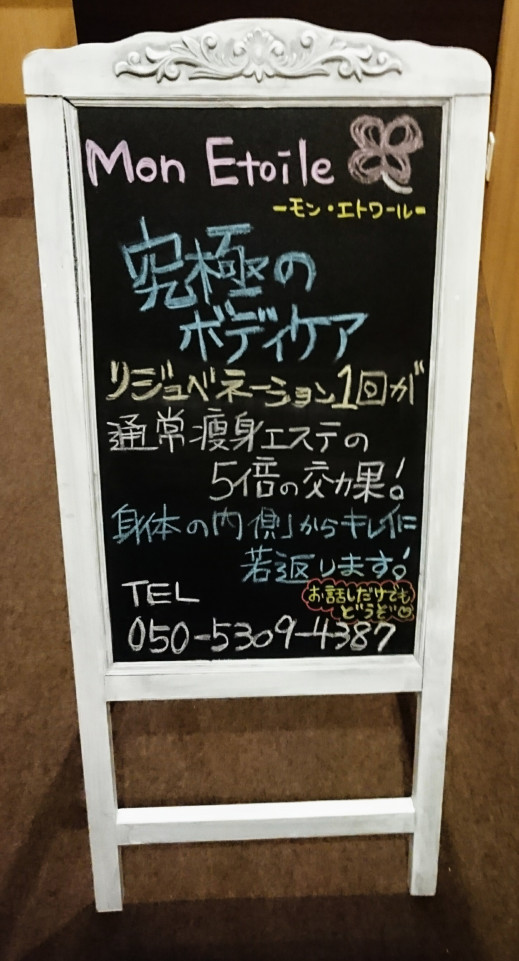 Mon Etoile
ーモン・エトワールー
究極の
ボディケア
リジュベネーション1回が
通常痩身エステの
5倍の効果!
身体の内側からキレイに
若返ります!
お話しだけでも
どうぞ
TEL
050-5309-4387